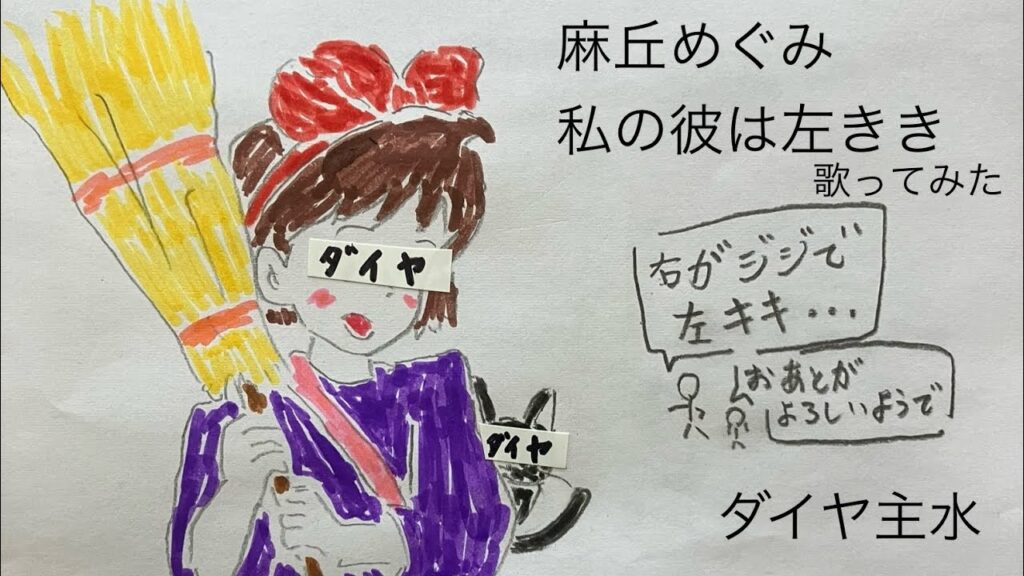 麻丘めぐみ
私の彼は左きき
歌ってみた
ダイヤ
右がジジで
左キキ・・・
おあとが
よろしいようで
ダイヤ
ダイヤ主水